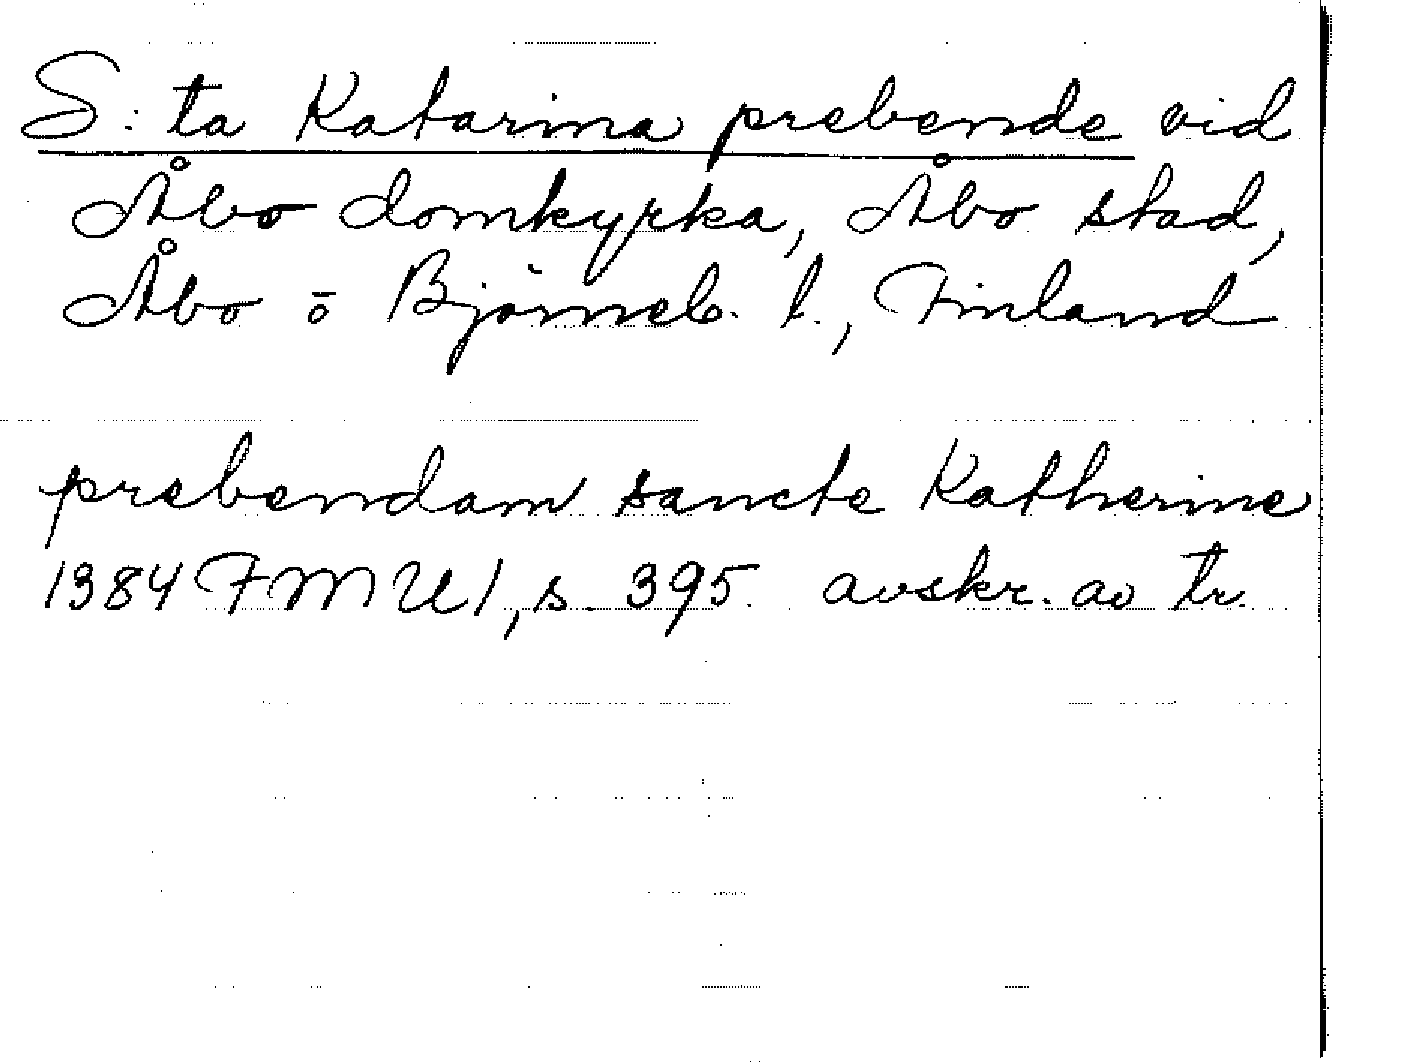 S:ta Katarina prebende vid
Åbo domkyrka, Åbo stad,
Åbo o Björneb. l., Finland
prebendam sancte Katherine
1384 FMU 1, s. 395. avskr. av tr.